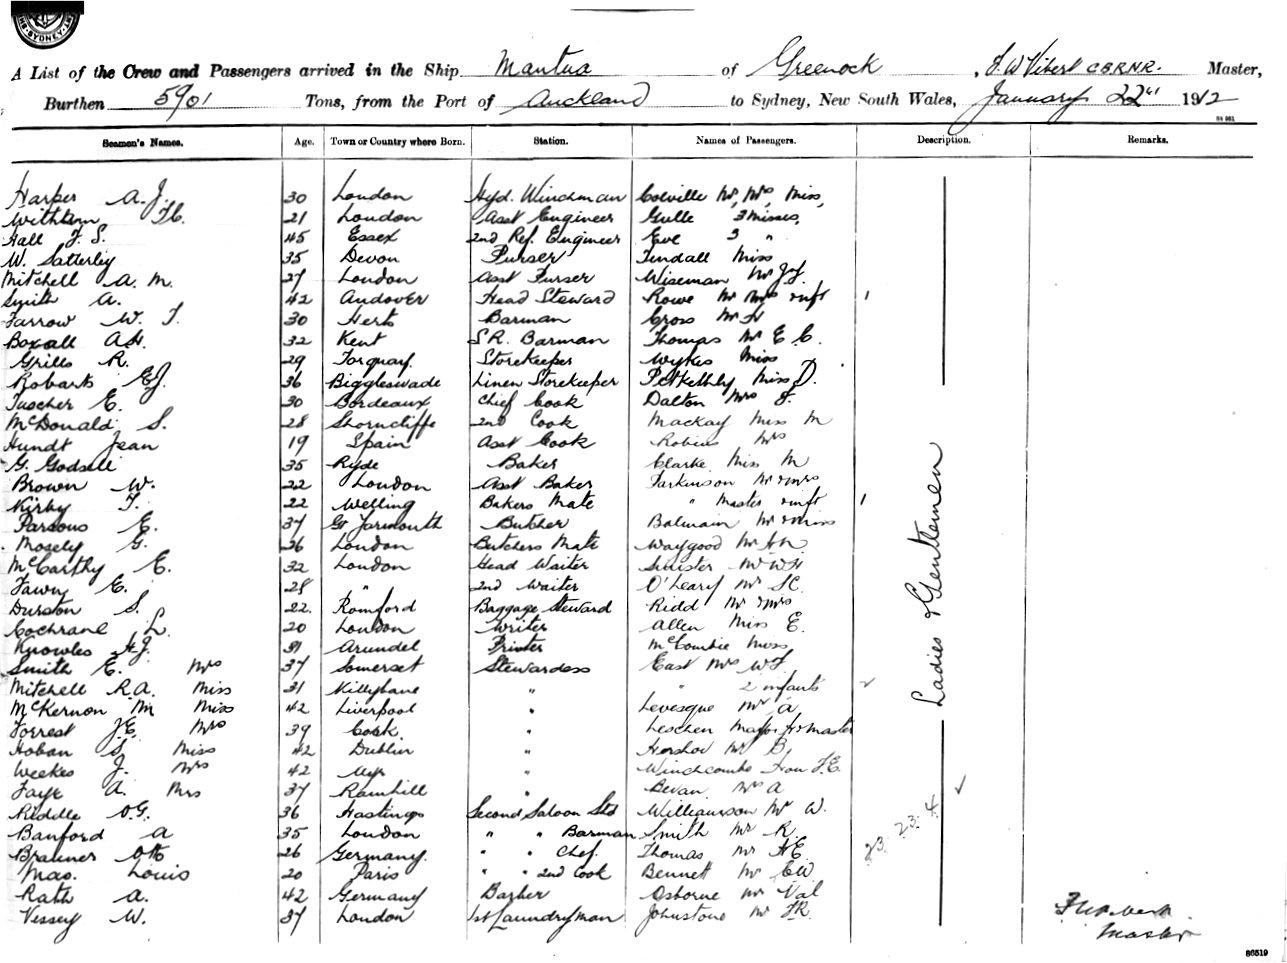 SYDNEY
A List of the Crew and Passengers arrived in the Ship Mantua of Greenock, F. W. Vibert C.B. R.N.R. Master,
Burthen 5901 Tons, from the Port of Auckland to Sydney, New South Wales, January 22nd 1912
Seamen's Names. Age. Town or Country where Born. Station. Names of Passengers. Description. Remarks.
Harper A. J. 30 London Hyd. Winchman Colville Mr, Mrs, Miss,
Witham 21 London Asst Engineer Gulle 3 Misses,
Hall F. S. 45 Essex 2nd Ref. Engineer Eve 3 "
W. Satterley 35 Devon Purser Tindall Miss
Mitchell A. M. 27 London Asst Purser Wiseman Mr J. F.
Smith A. 42 Andover Head Steward Rowe Mr Mrs & inft 1
Farrow W. F. 30 Herts Barman Cross Mr H
Boxall A H. 32 Kent S R. Barman Thomas Mr E C.
Grills R. 29 Torquay. Storekeeper Wykes Miss
Robarts E J. 36 Biggleswade Linen Storekeeper Petkethly Miss D.
Tuscher E. 30 Bordeaux Chief Cook Dalton Mrs F.
McDonald S. 28 Shorncliffe 2nd Cook Mackay Miss M
Hundt Jean 19 Spain Asst Cook Robins Mrs
G. Godsell 35 Ryde Baker Clarke Miss M
Brown W. 22 London Asst Baker Parkinson Mr & Mrs
Kirby F. 22 Welling Bakers Mate " Master & inft 1
Parsons E. 37 Gt Yarmouth Butcher Balmain Mr & Miss
Mosely G. 26 London Butchers Mate Waygood Mr
McCarthy E. 32 London Head Waiter Sinister Mr W H
Fawny E. 28 " 2nd Waiter O'Leary Mr
Durston S. 22. Romford Baggage Steward Ridd Mr & Mrs
Cochrane L. 20 London Writer Allen Miss E.
Knowles H J. 31 Arundel Printer McCombie Miss
Smith E. Mrs 37 Somerset Stewardess East Mrs W F.
Mitchell R. A. Miss 31 Killybane " " 2 infants 2
McKernon M Miss 42 Liverpool " Levesque Mr A
Forrest J E. Mrs 39 Cork. " Leschen Master
Hoban S. Miss 42 Dublin " Hershov Mr B.
Weekes J. Mrs 42 " Winchcombe Hon F. E.
Faye A. Mrs 37 Rainhill " Bevan Mrs A
Riddle O. G. 36 Hastings Second Saloon Std Williamson Mr W.
Banford A 35 London " " Barman Smith Mr R.
Brauner Otto 26 Germany. " " Chef. Thomas Mr H E.
Mao. Louis 20 Paris " " 2nd Cook Bennett Mr C W.
Rath A. 42 Germany Barber Osborne Mr Val
Vessey W. 37 London 1st Laundryman Johnstone Mr F R.
Ladies & Gentlemen
23. 23. 4
Master
86519